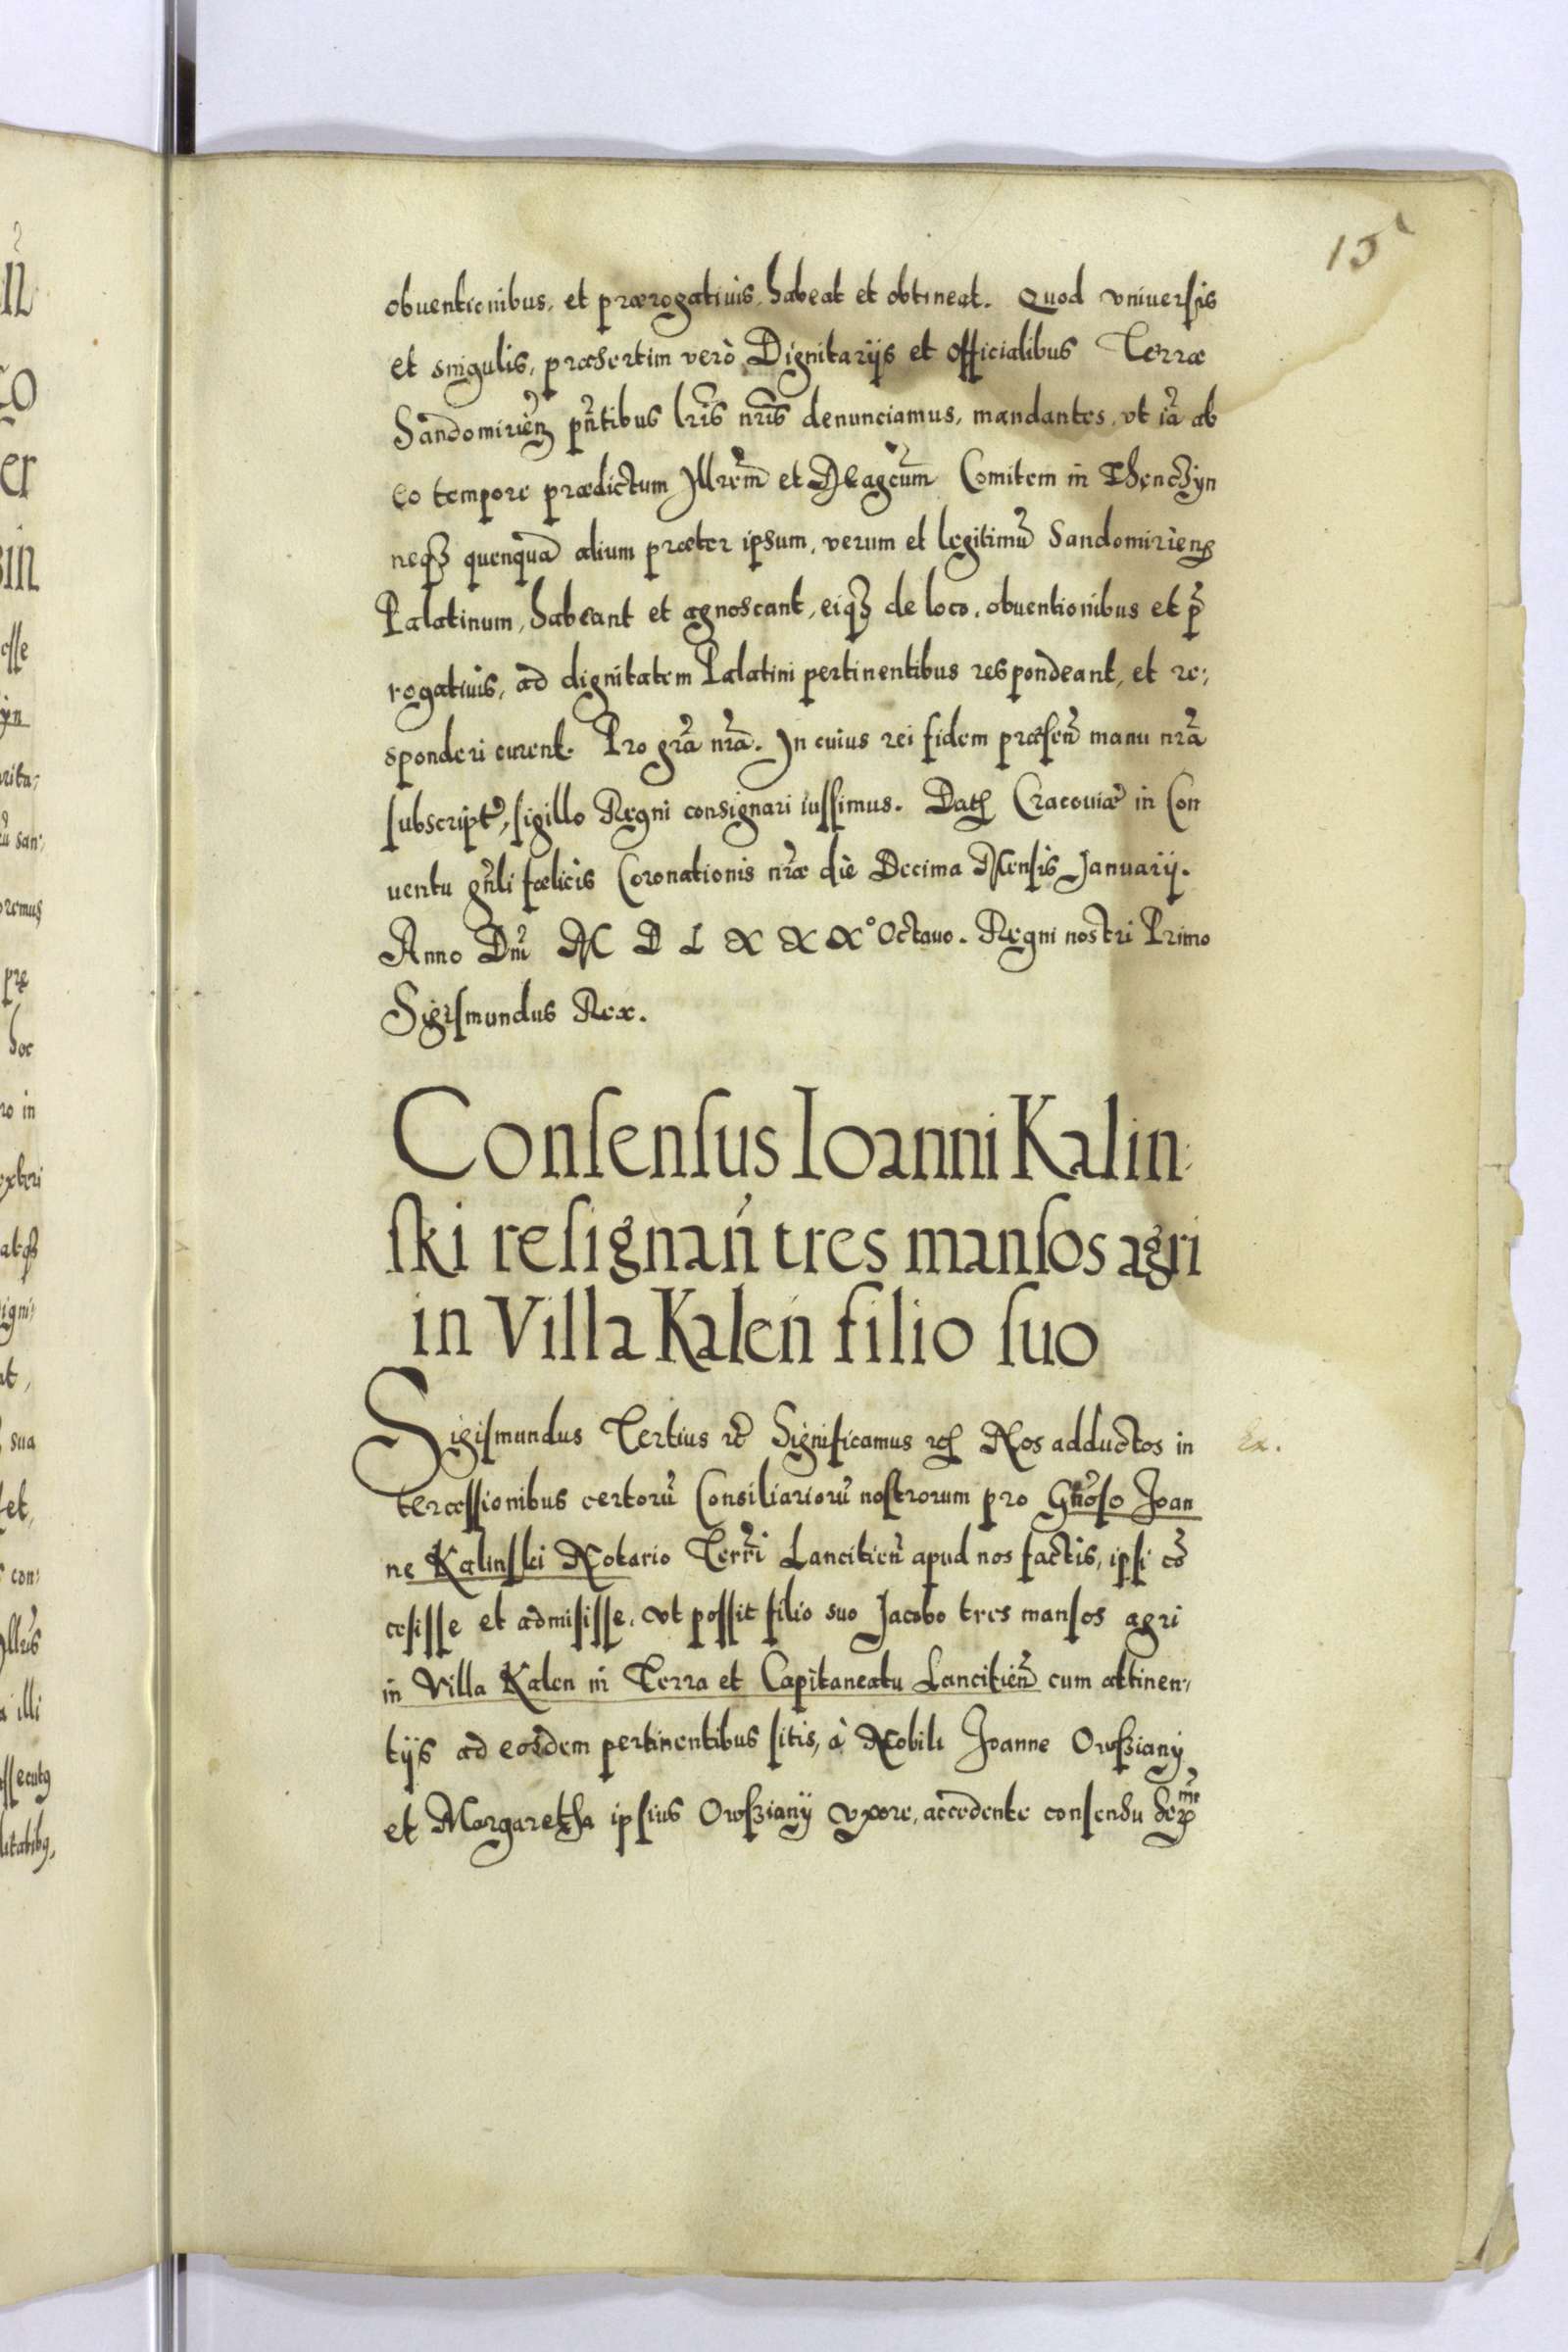 15
obuentionibus, et prærogatiuis, habeat et obtineat. Quod vniuersis
et singulis, præsertim verò Dignitarijs et officialibus Terræ
Sandomirieñ pñtibus lr̃is nr̃is denunciamus, mandantes, vt iã ab
eo tempore prædictum Jllrem̃ et Magcum̃ Comitem in Thenczyn
neqꝫ quenquã alium præter ipsum, verum et legitimũ Sandomirieñ
Palatinum, habeant et agnoscant, eiqꝫ de loco, obuentionibus et p̃
rogatiuis, ad dignitatem Palatini pertinentibus respondeant, et re:
sponderi curent. Pro gr̃a nr̃a. Jn cuius rei fidem præsen̄ manu nr̃a
subscript̃, sigillo Regni consignari iussimus. Datꝭ Cracouiæ in Con
uentu gñli fœlicis Coronationis nr̃æ die Decima Mensis Januarij.
Anno Dñi M D L X X X° Octauo. Regni nostri Primo
Sigismundus Rex.
Consensus Ioanni Kalin:
ski resignan̄ tres mansos agri
in Villa Kalen̄ filio suo
Sigismundus Tertius rc̃ Significamus rcꝭ Nos adductos in
Ex.
tercessionibus certorũ Consiliariorũ nostrorum pro Gñoso Joan
ne Kalinski Notario Terrr̃i Lancitien̄ apud nos factis, ipsi cõ
cesisse et admisisse, vt possit filio suo Jacobo tres mansos agri
in Villa Kalen in Terra et Capitaneatu Lancitien̄ cum attinen:
tijs ad eosdem pertinentibus sitis, à Nobili Joanne Owsziany
et Margaretha ipsius Owszianÿ vxore, accedente consensu